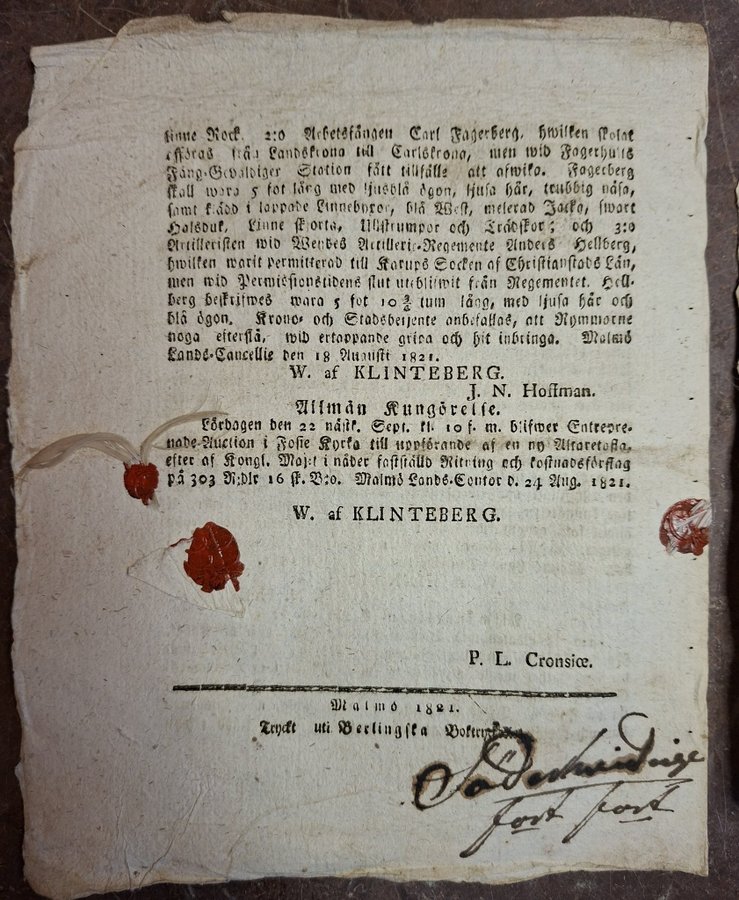 linne Rock. 2:o Arbetsfången Carl Fagerberg, hwilken skolat
afföras från Landskrona till Carlskrona, men wid Fagerhults
Fång-Gevaldiger Station fått tillfälle att afwika. Fagerberg
skall wara 5 fot lång med ljusblå ögon, ljusa hår, trubbig näsa,
samt klädd i lappade Linnebyxor, blå West, melerad Jacka, swart
Halsduk, Linne skjorta, Ullstrumpor och Trädskor; och 3:o
Artilleristen wid Wendes Artilleri-Regemente Anders Hellberg,
hwilken warit permitterad till Karups Socken af Christianstads Län,
men wid Permissionstidens slut uteblifwit från Regementet. Hell-
berg beskrifwes wara 5 fot 10 3/4 tum lång, med ljusa hår och
blå ögon. Krono- och Stadsbetjente anbefallas, att Rymmarne
noga efterslå, wid ertappande gripa och hit inbringa. Malmö
Lands-Cancellie den 18 Augusti 1821.
W. af KLINTEBERG.
J. N. Hoffman.
Allmän Kungörelse.
Lördagen den 22 nästk. Sept. kl. 10 f. m. blifwer Entrepre-
nade-Auction i Fosie Kyrka till uppförande af en ny Altaretafla,
efter af Kongl. Maj:t i nåder fastställd Ritning och kostnadsförslag
på 303 R:dlr 16 sk. B:o. Malmö Lands-Contor d. 24 Aug. 1821.
W. af KLINTEBERG.
P. L. Cronsiœ.
Malmö 1821.
Tryckt uti Berlingska
fort fort